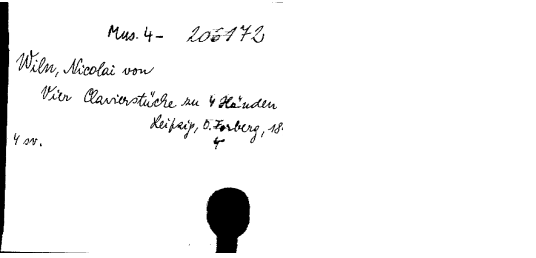 Mus. 4 - 206172
Wilm, Nicolai von
Vier Clavierstücke zu 4 Händen
Leipzig, O. Forberg, 18
4
4 sv.